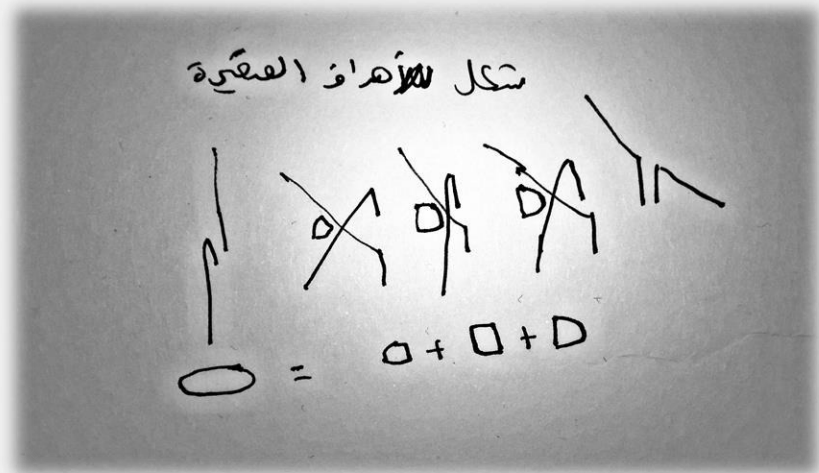 شكل الأهداف الصغيرة
= + +